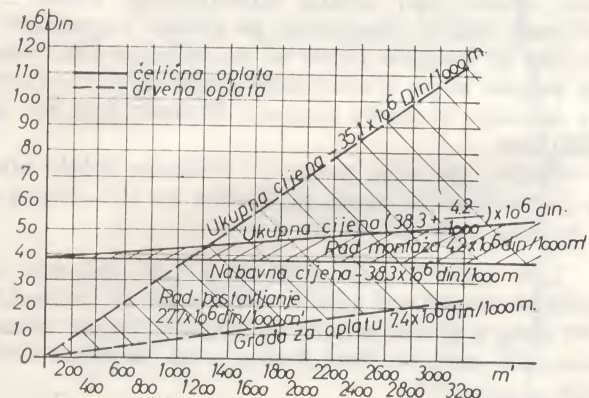 10⁶Din
120
110
100
90
80
70
60
50
40
30
20
10
0
čelična oplata
drvena oplata
Ukupna cijena - 35,1x10⁶ Din/1000m.
Ukupna cijena (38,3 + 4.2/1000)x10⁶ din.
Rad montaža 4.2x10⁶din/1000m'
Nabavna cijena - 38.3x10⁶din/1000m
Rad-postavljanje
27.7x10⁶din/1000m'
Građa za oplatu 7.4x10⁶din/1000m.
200 600 1000 1400 1800 2200 2600 3000 m'
400 800 1200 1600 2000 2400 2800 3200